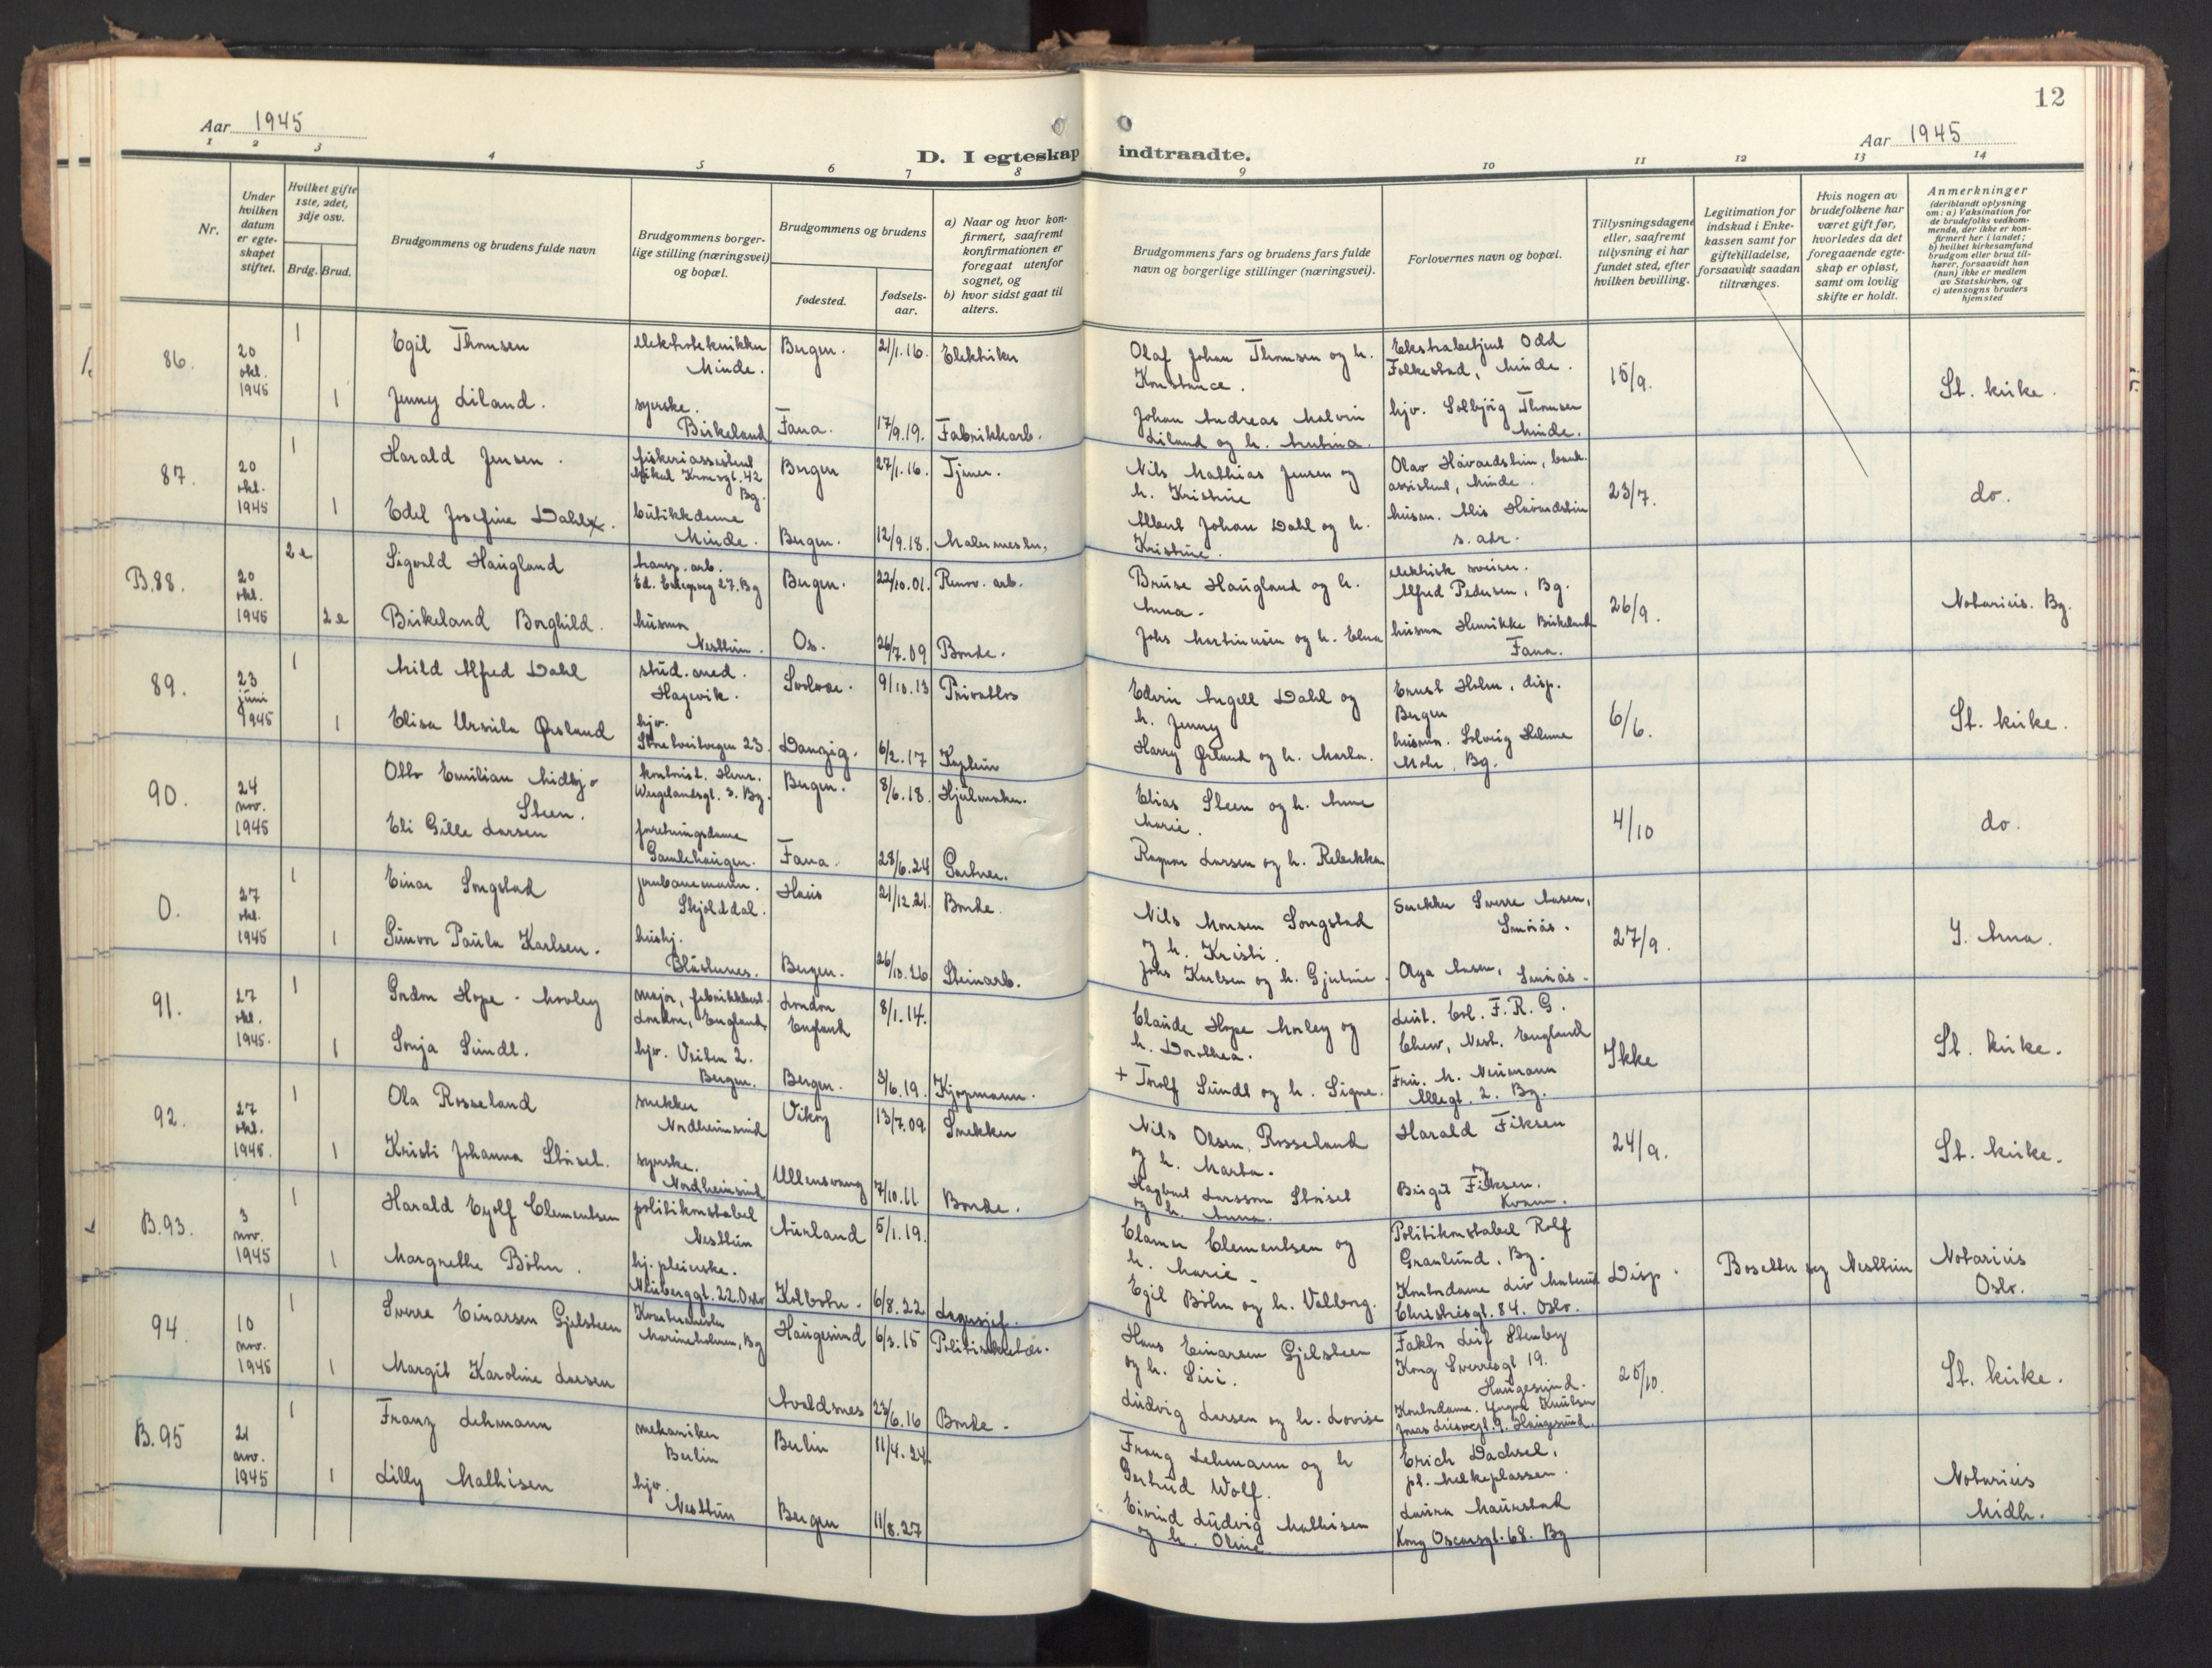 12
Aar 1945
Aar 1945
D. I egteskap indtraadte.
1 2 3 4 5 6 7 8 9 10 11 12 13 14
Nr.
Under hvilken datum er egteskapet stiftet.
Hvilket gifte 1ste, 2det, 3dje osv.
Brdg. Brud.
Brudgommens og brudens fulde navn
Brudgommens borgerlige stilling (næringsvei) og bopæl.
Brudgommens og brudens
fødested.
fødselsaar.
a) Naar og hvor konfirmert, saafremt konfirmationen er foregaat utenfor sognet, og
b) hvor sidst gaat til alters.
Brudgommens fars og brudens fars fulde navn og borgerlige stillinger (næringsvei).
Forlovernes navn og bopæl.
Tillysningsdagene eller, saafremt tillysning ei har fundet sted, efter hvilken bevilling.
Legitimation for indskud i Enkekassen samt for giftetilladelse, forsaavidt saadan tiltrænges.
Hvis nogen av brudefolkene har været gift før, hvorledes da det foregaaende egteskap er opløst, samt om lovlig skifte er holdt.
Anmerkninger
(deriblandt oplysning om: a) Vaksination for de brudefolks vedkommende, der ikke er konfirmert her i landet; b) hvilket kirkesamfund brudgom eller brud tilhører, forsaavidt han (hun) ikke er medlem av Statskirken, og c) utensogns bruders hjemsted
86. 20 okt. 1945 1 Egil Thomsen elektrotekniker Minde. Bergen. 21/1.16. Elektriker
Olaf Johan Thomsen og h. Konstance. Ekstrabetjent Odd Folkestad, Minde. 15/9. St. kirke.
1 Jenny Liland. syerske. Birkeland Fana. 17/9.19. Fabrikkarb.
Johan Andreas Malvin Liland og h. hjv. Solbjörg Thomsen Minde.
87. 20 okt. 1945 1 Harald Jensen. fiskeriassistent Mikal Kronsgt. 42 Bg. Bergen 27/1.16. Tjener.
Nils Mathias Jensen og h. Kristine Olav Håvardstun, bank. assistent, Minde. 23/7. do.
1 Edel Josefine Dahl. butikkdame Minde. Bergen. 12/9.18. Malermester,
Albert Johan Dahl og h. Kristine. husm. Håvardstun s. adr.
B.88. 20 okt. 1945 2e Sigvald Haugland transp. arb. 27. Bg Bergen. 22/10.01. Renov. arb.
Bruse Haugland og h. Anna. elektrisk sveiser. Alfred Pedersen, Bg. 26/9. Notarius. Bg.
2e Birkeland Borghild. husm Nesttun. Os. 26/7.09 Bonde.
Johs Martinusen og h. Elna husm Henrikke Birkeland Fana.
89. 23 juni 1945 1 Arild Alfred Dahl stud. med. Hagevik. Svolvær. 9/10.13 Privatlos
Edvin Angell Dahl og h. Jenny Ernst Holm, disp. Bergen 6/6. St. kirke.
1 Elisa Ursula Ørslund hjv. 23. Danzig. 6/2.17 Kaptein
Harry Ørlund og h. Marta. husm. Solveig Helene Mohr, Bg.
90. 24 nov. 1945 Otto Emilian Midbjo Steen. kontorist. Henr. Wergelandsgt. 3. Bg. Bergen. 8/6.18. Hjulmaker.
Elias Steen og h. Anne Marie. 4/10 do.
Eli Gitle Larsen forretningsdame Gamlehaugen. Fana. 28/6.24 Gartner.
Ragnar Larsen og h. Rebekka
0. 27 okt. 1945 1 Einar Songstad jernbanemann. Skjolddal. Haus 21/12.21. Bonde.
Nils Monsen Songstad og h. Kristi. Snekker Sverre Aasen, Smörås. 27/9. Y. Arna.
1 Gunvor Paula Karlsen. hushj. Bergen. 26/10.26 Steinarb.
Johs Karlsen og h. Olga Aasen, Smörås.
91. 27 okt. 1945. 1 Gordon Hope - Morley major, London, England, London England 8/1.14.
Claude Hope Morley og h. Dorothea. Leut. Col. F. R. G. Chew, England Ikke St. kirke.
1 Sonja Sundt. hjv. Veiten 2. Bergen. Bergen. 3/6.19. Kjøpmann.
+ Torolf Sundt og h. Signe. Fru. M. Neumann Allegt. 2. Bg.
92. 27 okt. 1945. 1 Ola Rosseland snekker Nordheimsund Vikøy 13/7.09 Snekker
Nils Olsen Rosseland og h. Marta. Harald Fiksen 24/9. St. kirke.
1 Kristi Johanna syerske. Nordheimsund Ullensvang 7/10.11 Bonde.
Larsson og h. Anna. og Birgit Fiksen. Kvam.
B.93. 3 nov. 1945 1 Harald Eyolf Clementsen politikonstabel Nesttun Aurland 5/1.19.
Clamer Clementsen og h. Marie. Politikonstabel Rolf Granlund, Bg. Disp. Bosetter seg Nesttun Notarius Oslo.
1 Margrethe Böhn. hj. pleierske. Neuberggt. 22. Oslo Kolbotn. 6/8.22
Egil Böhn og h. Valborg. Kontordame Liv Christiesgt. 84. Oslo.
94. 10 nov. 1945 1 Sverre Einarsen Gjelsteen Marineholmen, Bg Haugesund 6/3.15
Hans Einarsen Gjelsteen og h. Siri. Faktor Leif Stenby Kong Sverresgt 19. Haugesund. 25/10. St. kirke.
1 Margit Karoline Larsen Avaldsnes 23/6.16 Bonde.
Ludvig Larsen og h. Lovise Kontordame. Knutsen Jonas Liesvegt. 9. Haugesund.
B.95 21 nov. 1945 1 Franz Lehmann mekaniker Berlin Berlin 11/4.24
Franz Lehmann og h Gertrud Wolf. Erich Dachsel, pt. Melkeplassen. Notarius Midh.
1 Lilly Mathisen hjv. Nesttun Bergen 11/8.27
Eivind Ludvig Mathisen og h. Oline. Laura Maurstad Kong Oscarsgt. 68. Bg